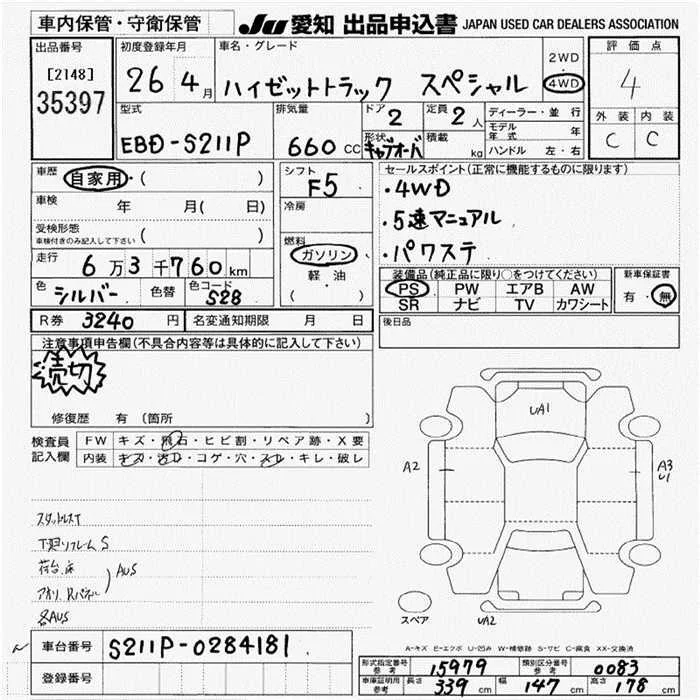 車内保管・守衛保管
JU 愛知 出品申込書 JAPAN USED CAR DEALERS ASSOCIATION
出品番号
[2148]
35397
初度登録年月
26 4月
車名・グレード
ハイゼットトラック スペシャル
2WD
・
4WD
評価点
4
外装 内装
C C
型式
EBD-S211P
排気量
660 CC
ドア
2
定員
2人
形状
キャブオーバ
積載
kg
ディーラー・並行
モデル年式 年
ハンドル 左・右
車歴
自家用・( )
車検 年 月( 日)
受検形態
車検付きのみ記入して下さい ( )
走行 6万3千760km
色 シルバー 色替 色コード S28
シフト
F5
冷房
燃料
ガソリン
軽油
( )
セールスポイント(正常に機能するものに限ります)
・4WD
・5速マニュアル
・パワステ
装備品(純正品に限り○をつけてください)
PS PW エアB AW
SR ナビ TV カワシート
新車保証書
有・無
R券 3240円 名変通知期限 月 日
後日品
注意事項申告欄(不具合内容等は具体的に記入して下さい)
売切
修復歴 有 (箇所 )
検査員記入欄
FW キズ・飛石・ヒビ割・リペア跡・X要
内装 キズ・汚レ・コゲ・穴・スレ・キレ・破レ
UA1
A2
A3
U1
スペア
UA2
下廻リフレームS
荷台.床
AUS
アオリ.Rパネル
各AUS
A-キズ E-エクボ U-凹み W-補修跡 S-サビ C-腐食 XX-交換済
車台番号 S211P-0284181
登録番号
形式指定番号 参考 15979 類別区分番号 参考 0083
車庫証明用 参考 長さ 339cm 幅 147cm 高さ 178cm